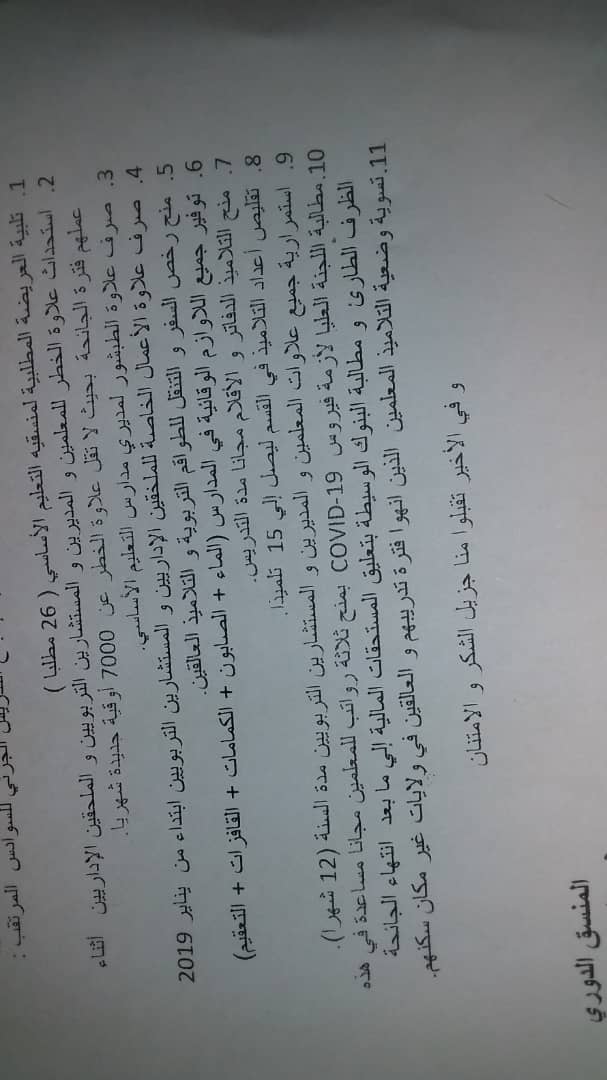 الجزئي للسوادس المرتقب :
1. تلبية العريضة المطلبية لمنسقيه التعليم الأساسي ( 26 مطلبا )
2. استحداث علاوة الخطر للمعلمين و المديرين و المستشارين التربويين و الملحقين الإداريين أثناء
عملهم فترة الجائحة بحيث لا تقل علاوة الخطر عن 7000 أوقية جديدة شهريا.
3. صرف علاوة الطبشور لمديري مدارس التعليم الأساسي.
4. صرف علاوة الأعمال الخاصة للملحقين الإداريين و المستشارين التربويين ابتداء من يناير 2019
5. منح رخص السفر و التنقل للطواقم التربوية و التلاميذ العالقين.
6. توفير جميع اللاوازم الوقائية في المدارس (الماء + الصابون + الكمامات + القافزات + التعقيم)
7. منح التلاميذ الدفاتر و الأقلام مجانا مدة التدريس.
8. تقليص أعداد التلاميذ في القسم ليصل إلي 15 تلميذا.
9. استمرارية جميع علاوات المعلمين و المديرين و المستشارين التربويين مدة السنة (12 شهرا).
10. مطالبة اللجنة العليا لأزمة فيروس COVID-19 بمنح ثلاثة رواتب للمعلمين مجانا مساعدة في هذه
الظرف الطارئ و مطالبة البنوك الوسيطة بتعليق المستحقات المالية إلي ما بعد انتهاء الجائحة
11. تسوية وضعية التلاميذ المعلمين الذين انهوا فترة تدريبهم و العالقين في ولايات غير مكان سكنهم.
و في الأخير تقبلوا منا جزيل الشكر و الامتنان
المنسق الدوري